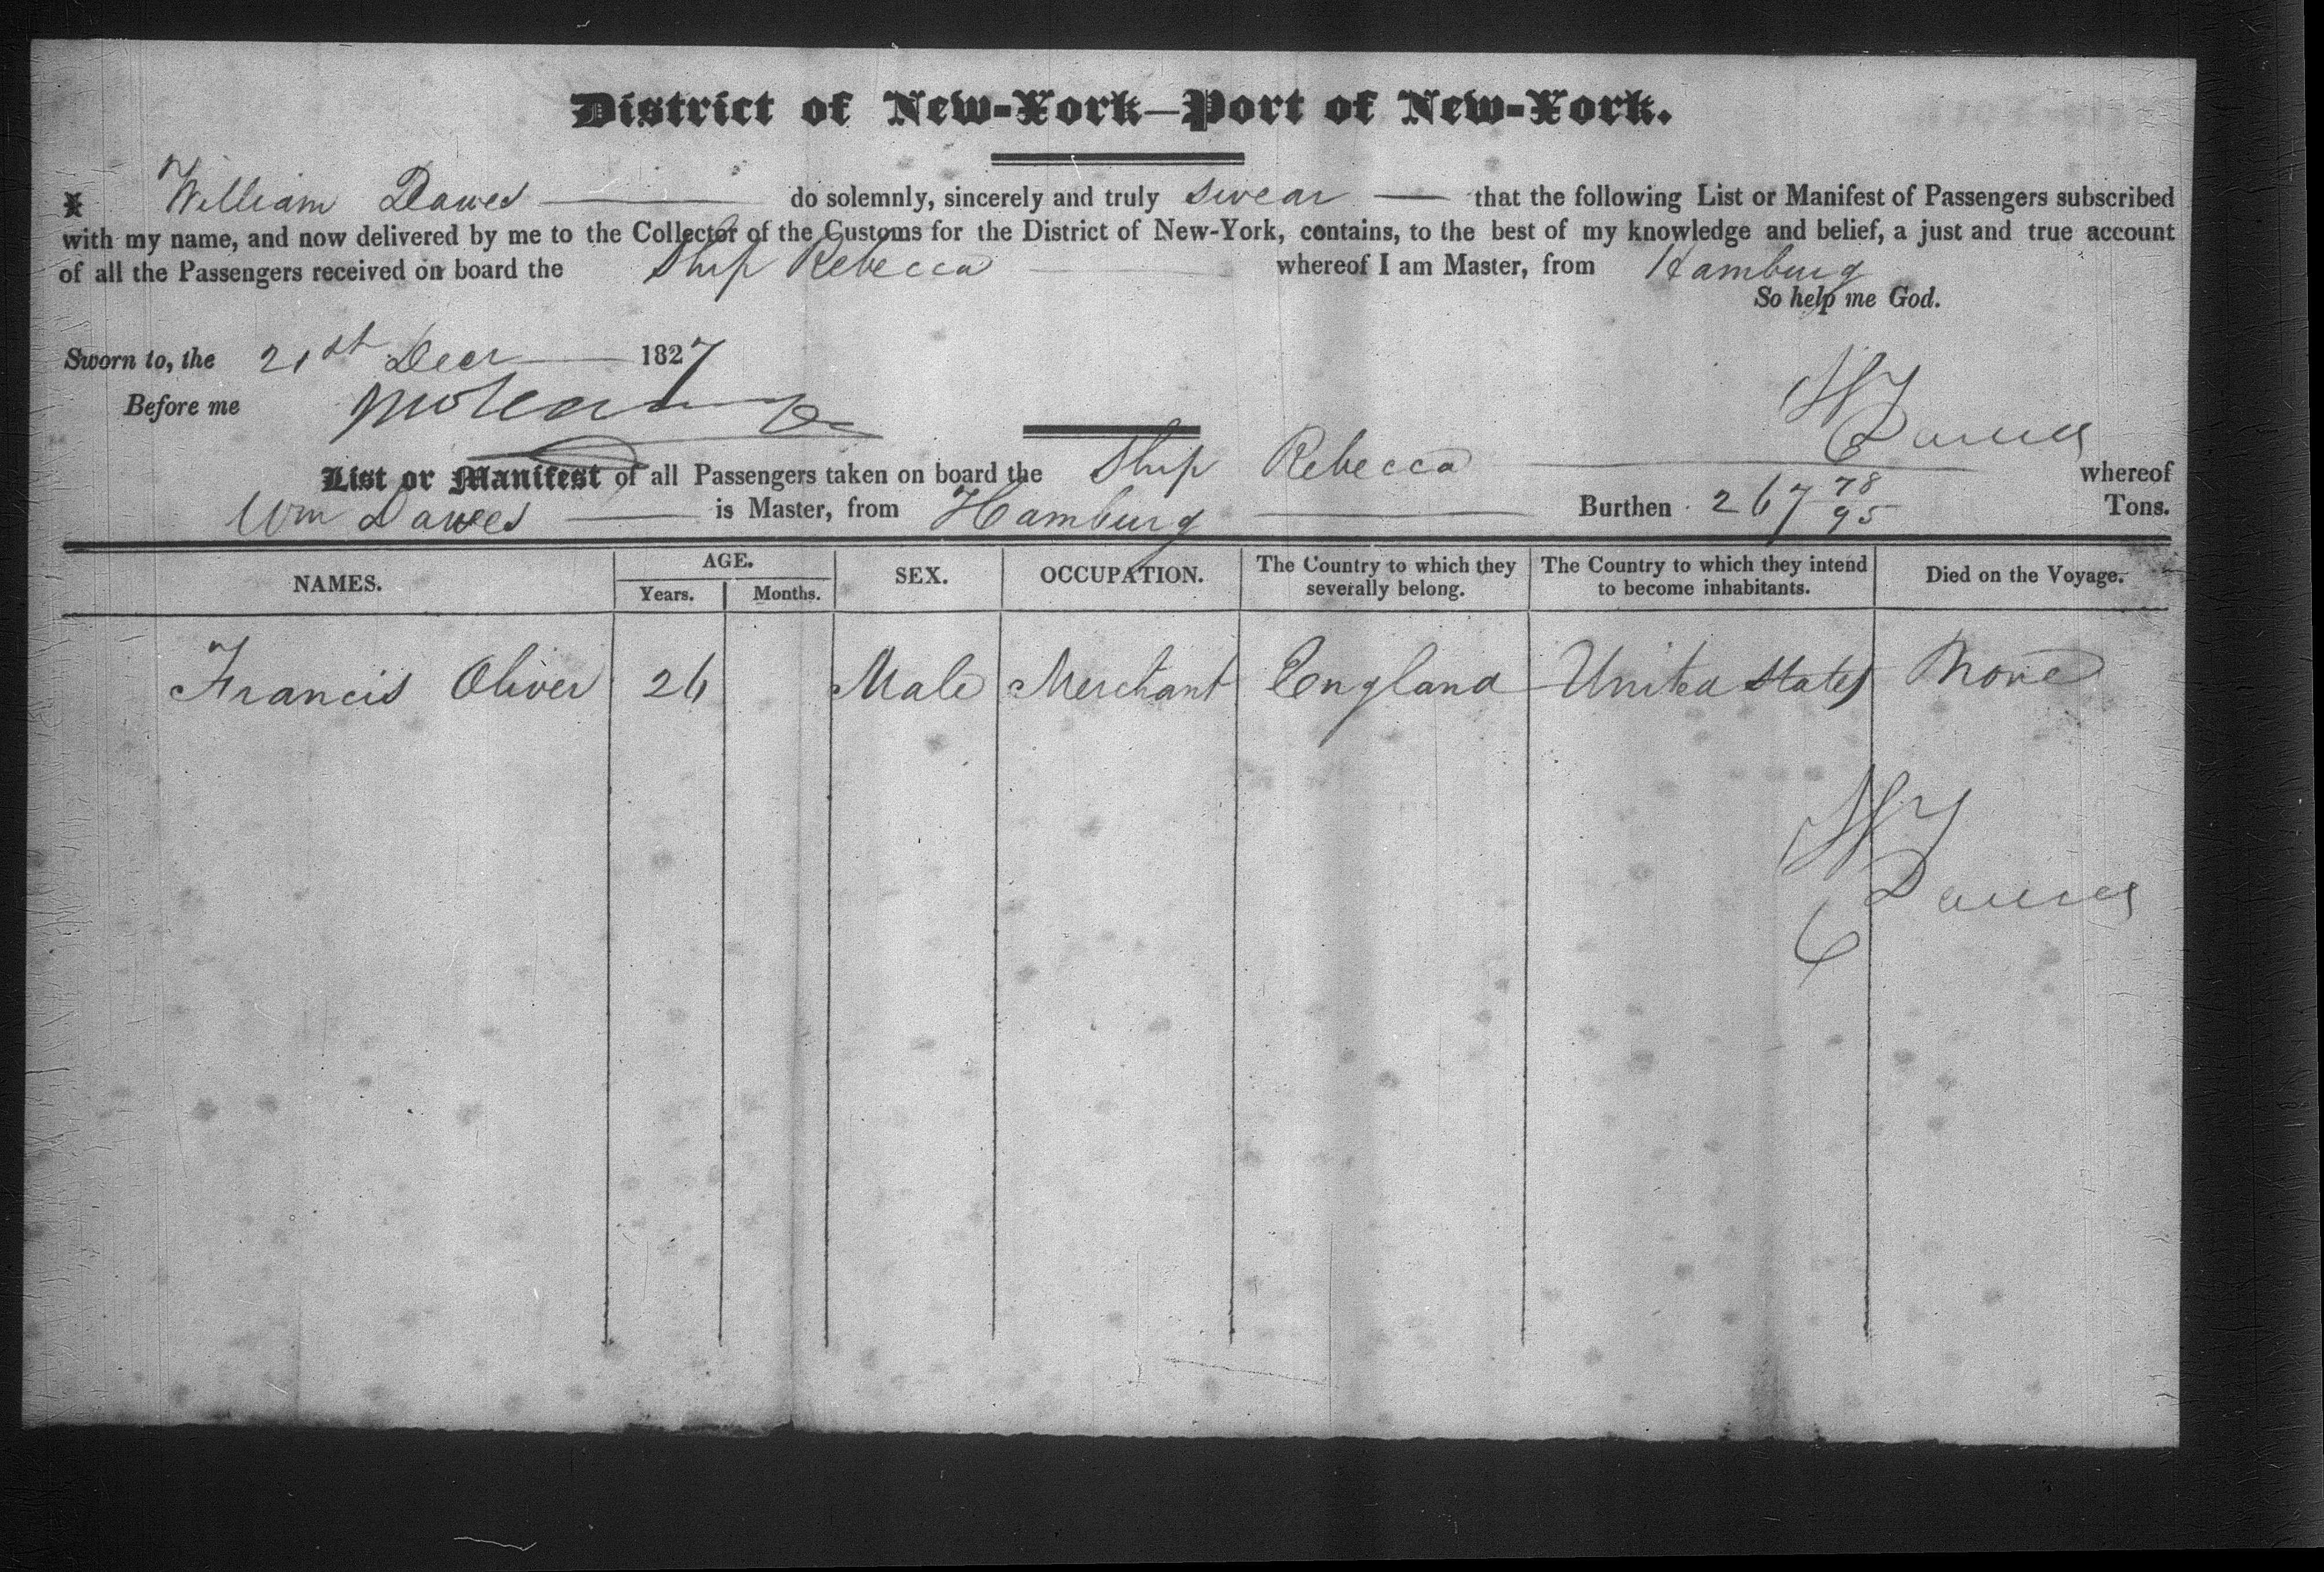 District of New-York—Port of New-York.
I William Dawes do solemnly, sincerely and truly swear that the following List or Manifest of Passengers subscribed
with my name, and now delivered by me to the Collector of the Customs for the District of New-York, contains, to the best of my knowledge and belief, a just and true account
of all the Passengers received on board the Ship Rebecca whereof I am Master, from Hamburg
So help me God.
Sworn to, the 21st Decr 1827
Before me
W Dawes
List or Manifest of all Passengers taken on board the Ship Rebecca whereof
Wm Dawes is Master, from Hamburg Burthen 267 78/95 Tons.
NAMES. AGE. Years. Months. SEX. OCCUPATION. The Country to which they severally belong. The Country to which they intend to become inhabitants. Died on the Voyage.
Francis Oliver 26 Male Merchant England United States None
W Dawes